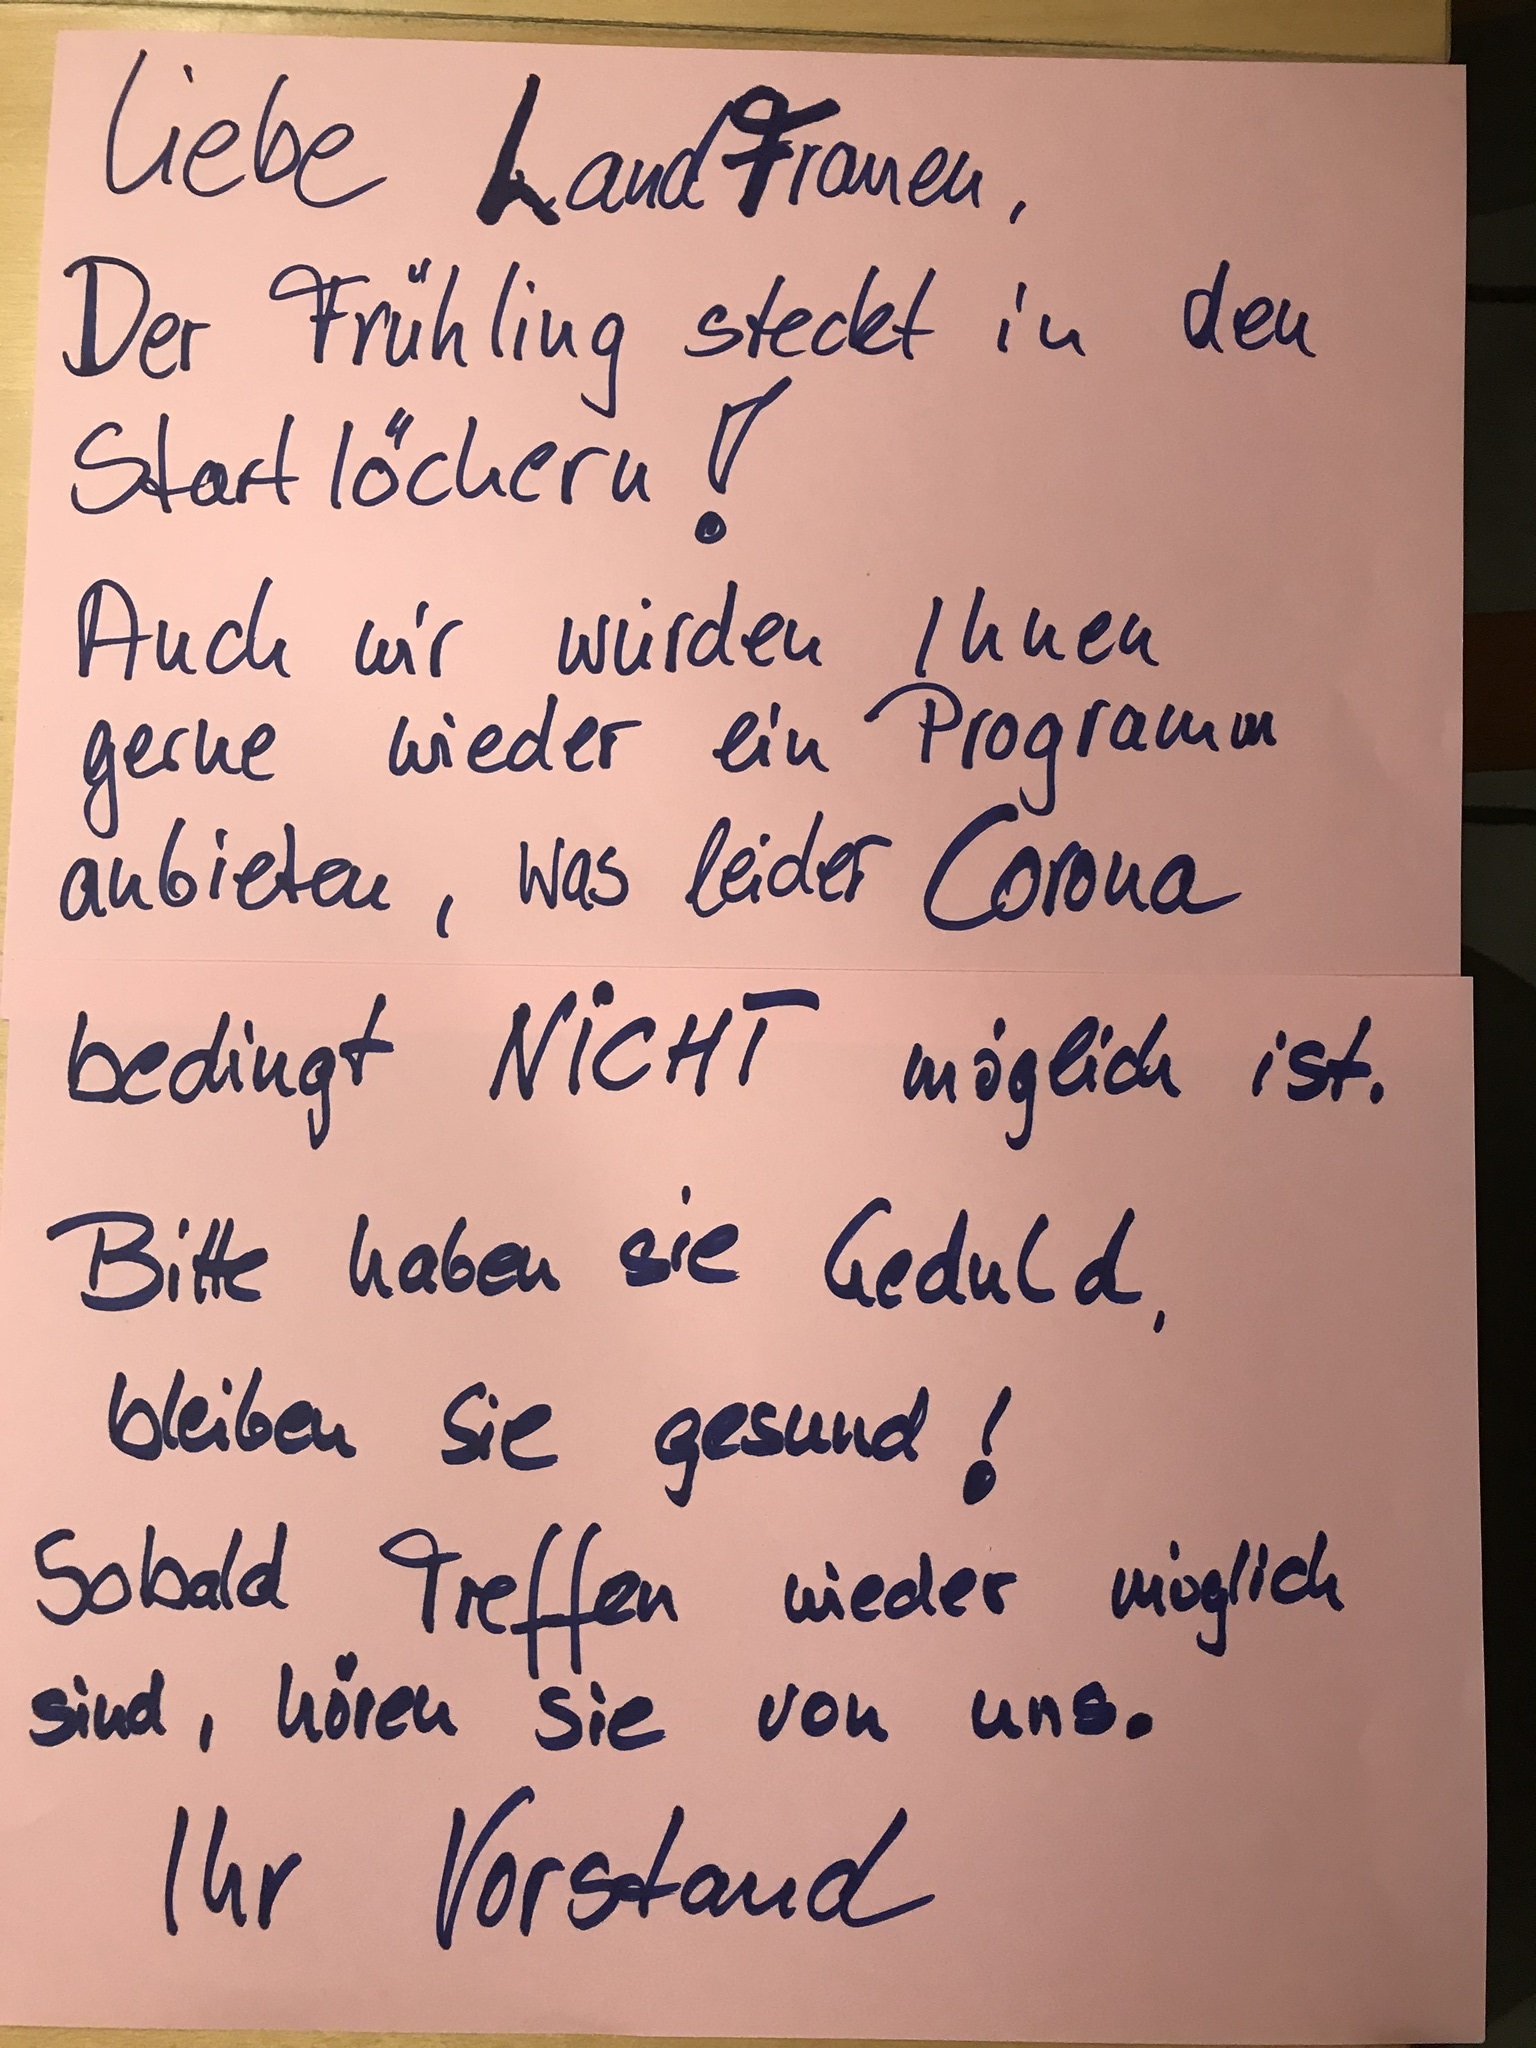 Liebe LandFrauen,
Der Frühling steckt in den
Startlöchern!
Auch wir würden Ihnen
gerne wieder ein Programm
anbieten, was leider Corona
bedingt NiCHT möglich ist.
Bitte haben sie Geduld,
bleiben Sie gesund!
Sobald Treffen wieder möglich
sind, hören Sie von uns.
Ihr Vorstand